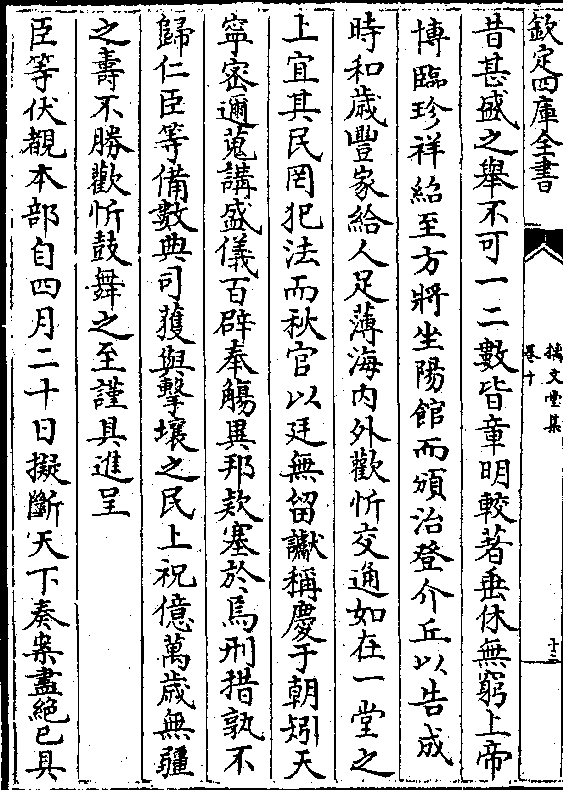 欽定四庫全書
摛文堂集
卷十
十三
昔甚盛之舉不可一二數皆章明較著垂休無窮上帝
博臨珍祥紹至方將坐陽館而頒治登介丘以告成
時和歳豐家給人足薄海内外歡忻交通如在一堂之
上宜其民罔犯法而秋官以廷無留讞稱慶于朝矧天
寜宻邇蒐講盛儀百辟奉觴異邦欵塞於焉刑措孰不
歸仁臣等備數典司獲與擊壤之民上祝億萬歳無疆
之壽不勝歡忻鼓舞之至謹具進呈
臣等伏覩本部自四月二十日擬斷天下奏案盡絶已具